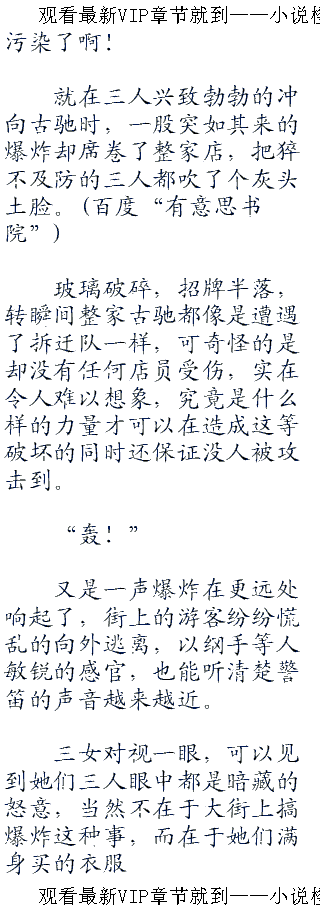 观看最新VIP章节就到——小说
污染了啊！
就在三人兴致勃勃的冲
向古驰时，一股突如其来的
爆炸却席卷了整家店，把猝
不及防的三人都吹了个灰头
土脸。(百度“有意思书
院”)
玻璃破碎，招牌半落，
转瞬间整家古驰都像是遭遇
了拆迁队一样，可奇怪的是
却没有任何店员受伤，实在
令人难以想象，究竟是什么
样的力量才可以在造成这等
破坏的同时还保证没人被攻
击到。
“轰！”
又是一声爆炸在更远处
响起了，街上的游客纷纷慌
乱的向外逃离，以纲手等人
敏锐的感官，也能听清楚警
笛的声音越来越近。
三女对视一眼，可以见
到她们三人眼中都是暗藏的
怒意，当然不在于大街上搞
爆炸这种事，而在于她们满
身买的衣服
观看最新VIP章节就到——小说